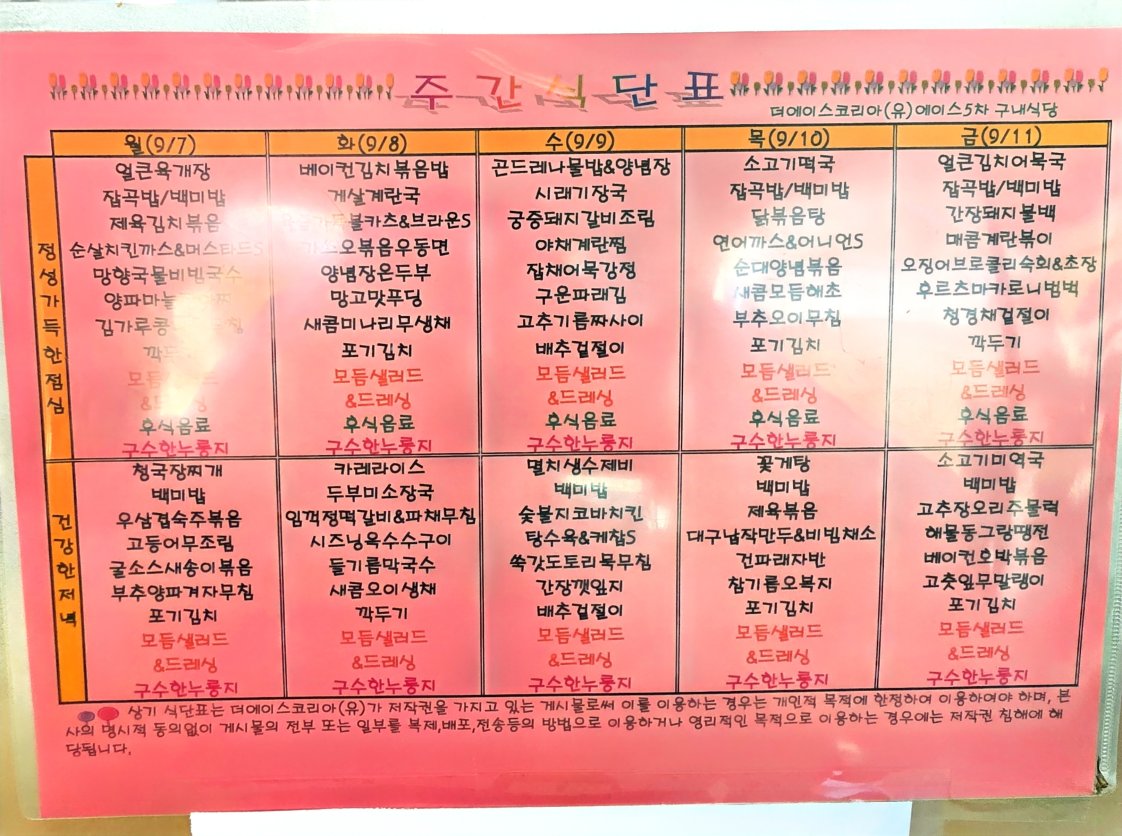 주간식단표
더에이스코리아(유)에이스5차 구내식당
월(9/7) 화(9/8) 수(9/9) 목(9/10) 금(9/11)
정성가득한점심
얼큰육개장 베이컨김치볶음밥 곤드레나물밥&양념장 소고기떡국 얼큰김치어묵국
잡곡밥/백미밥 게살계란국 시래기장국 잡곡밥/백미밥 잡곡밥/백미밥
제육김치볶음 궁중돼지갈비조림 닭볶음탕 간장돼지불백
순살치킨까스&머스타드S 야채계란찜 연어까스&어니언S 매콤계란볶이
망향국물비빔국수 양념장온두부 잡채어묵강정 순대양념볶음 오징어브로콜리숙회&초장
망고맛푸딩 구운파래김 새콤모듬해초 후르츠마카로니범벅
새콤미나리무생채 고추기름짜사이 부추오이무침 청경채겉절이
포기김치 배추겉절이 포기김치 깍두기
모듬샐러드 모듬샐러드 모듬샐러드 모듬샐러드 모듬샐러드
&드레싱 &드레싱 &드레싱 &드레싱 &드레싱
후식음료 후식음료 후식음료 후식음료 후식음료
구수한누룽지 구수한누룽지 구수한누룽지 구수한누룽지 구수한누룽지
건강한저녁
청국장찌개 카레라이스 멸치생수제비 꽃게탕 소고기미역국
백미밥 두부미소장국 백미밥 백미밥 백미밥
우삼겹숙주볶음 임꺽정떡갈비&파채무침 숯불지코바치킨 제육볶음 고추장오리주물럭
고등어무조림 시즈닝옥수수구이 탕수육&케찹S 대구납작만두&비빔채소 해물동그랑땡전
굴소스새송이볶음 들기름막국수 쑥갓도토리묵무침 건파래자반 베이컨호박볶음
부추양파겨자무침 새콤오이생채 간장깻잎지 참기름오복지 고춧잎무말랭이
포기김치 깍두기 배추겉절이 포기김치 포기김치
모듬샐러드 모듬샐러드 모듬샐러드 모듬샐러드 모듬샐러드
&드레싱 &드레싱 &드레싱 &드레싱 &드레싱
구수한누룽지 구수한누룽지 구수한누룽지 구수한누룽지 구수한누룽지
상기 식단표는 더에이스코리아(유)가 저작권을 가지고 있는 게시물로써 이를 이용하는 경우는 개인적 목적에 한정하여 이용하여야 하며, 본
사의 명시적 동의없이 게시물의 전부 또는 일부를 복제,배포,전송등의 방법으로 이용하거나 영리적인 목적으로 이용하는 경우에는 저작권 침해에 해
당됩니다.